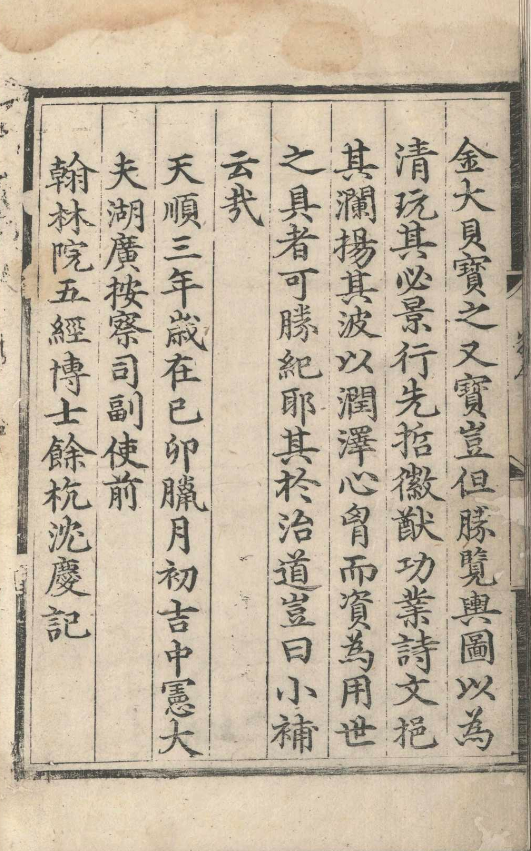 金大貝寶之又寶豈但勝覽輿圖以為
清玩其必景行先哲徽猷功業詩文挹
其瀾揚其波以潤澤心胷而資為用世
之具者可勝紀耶其於治道豈曰小補
云㢤
天順三年歲在己卯臘月初吉中憲大
夫湖廣按察司副使前
翰林院五經博士餘杭沈慶記